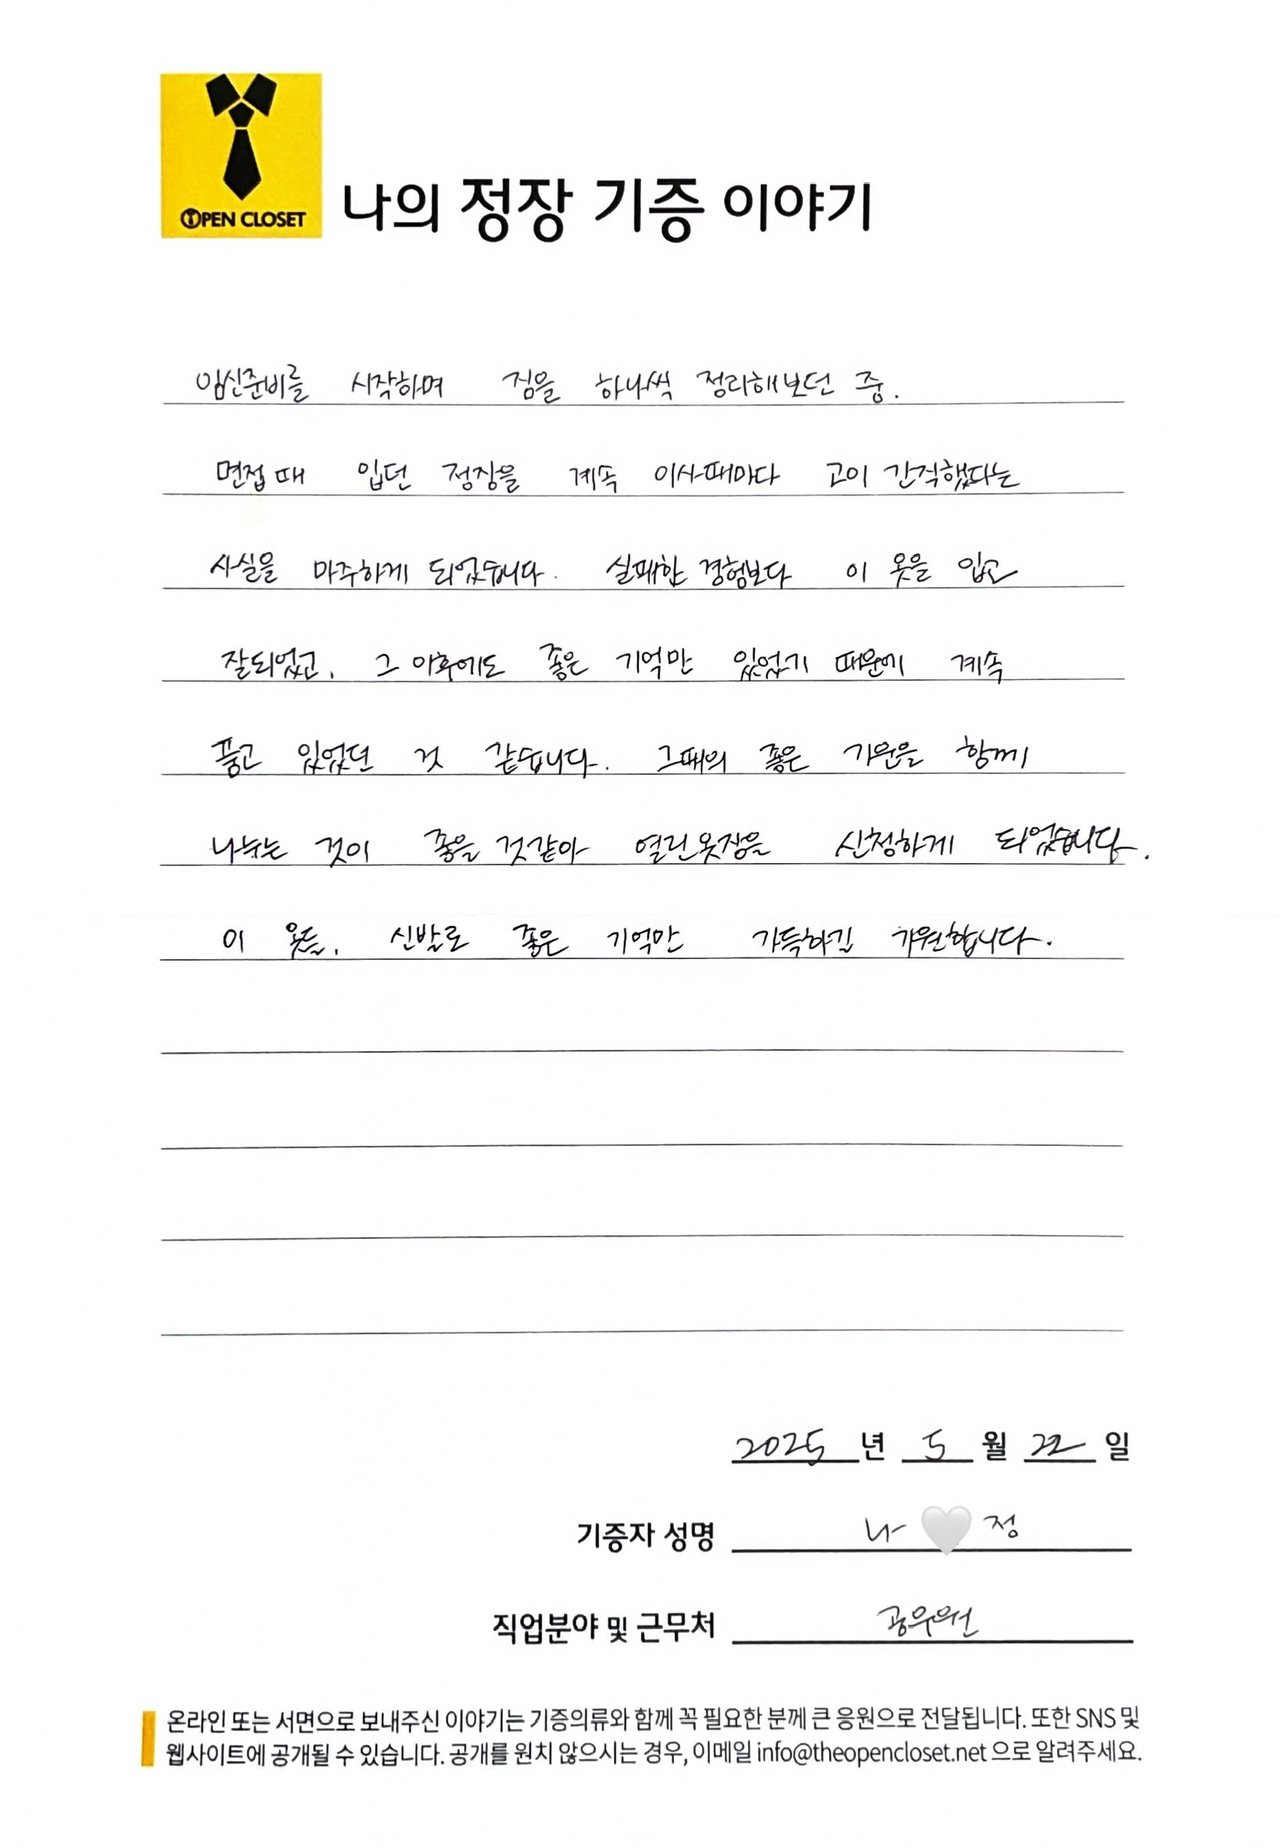 OPEN CLOSET
나의 정장 기증 이야기
임신준비를 시작하며 짐을 하나씩 정리해보던 중.
면접 때 입던 정장을 계속 이사때마다 고이 간직했다는
사실을 마주하게 되었습니다. 실패한 경험보다 이 옷을 입고
잘되었고, 그 이후에도 좋은 기억만 있었기 때문에 계속
품고 있었던 것 같습니다. 그때의 좋은 기운을 함께
나누는 것이 좋을 것같아 열린옷장을 신청하게 되었습니다.
이 옷들, 신발로 좋은 기억만 가득하길 기원합니다.
2025 년 5 월 22 일
기증자 성명 나 정
직업분야 및 근무처 공무원
온라인 또는 서면으로 보내주신 이야기는 기증의류와 함께 꼭 필요한 분께 큰 응원으로 전달됩니다. 또한 SNS 및
웹사이트에 공개될 수 있습니다. 공개를 원치 않으시는 경우, 이메일 info@theopencloset.net 으로 알려주세요.